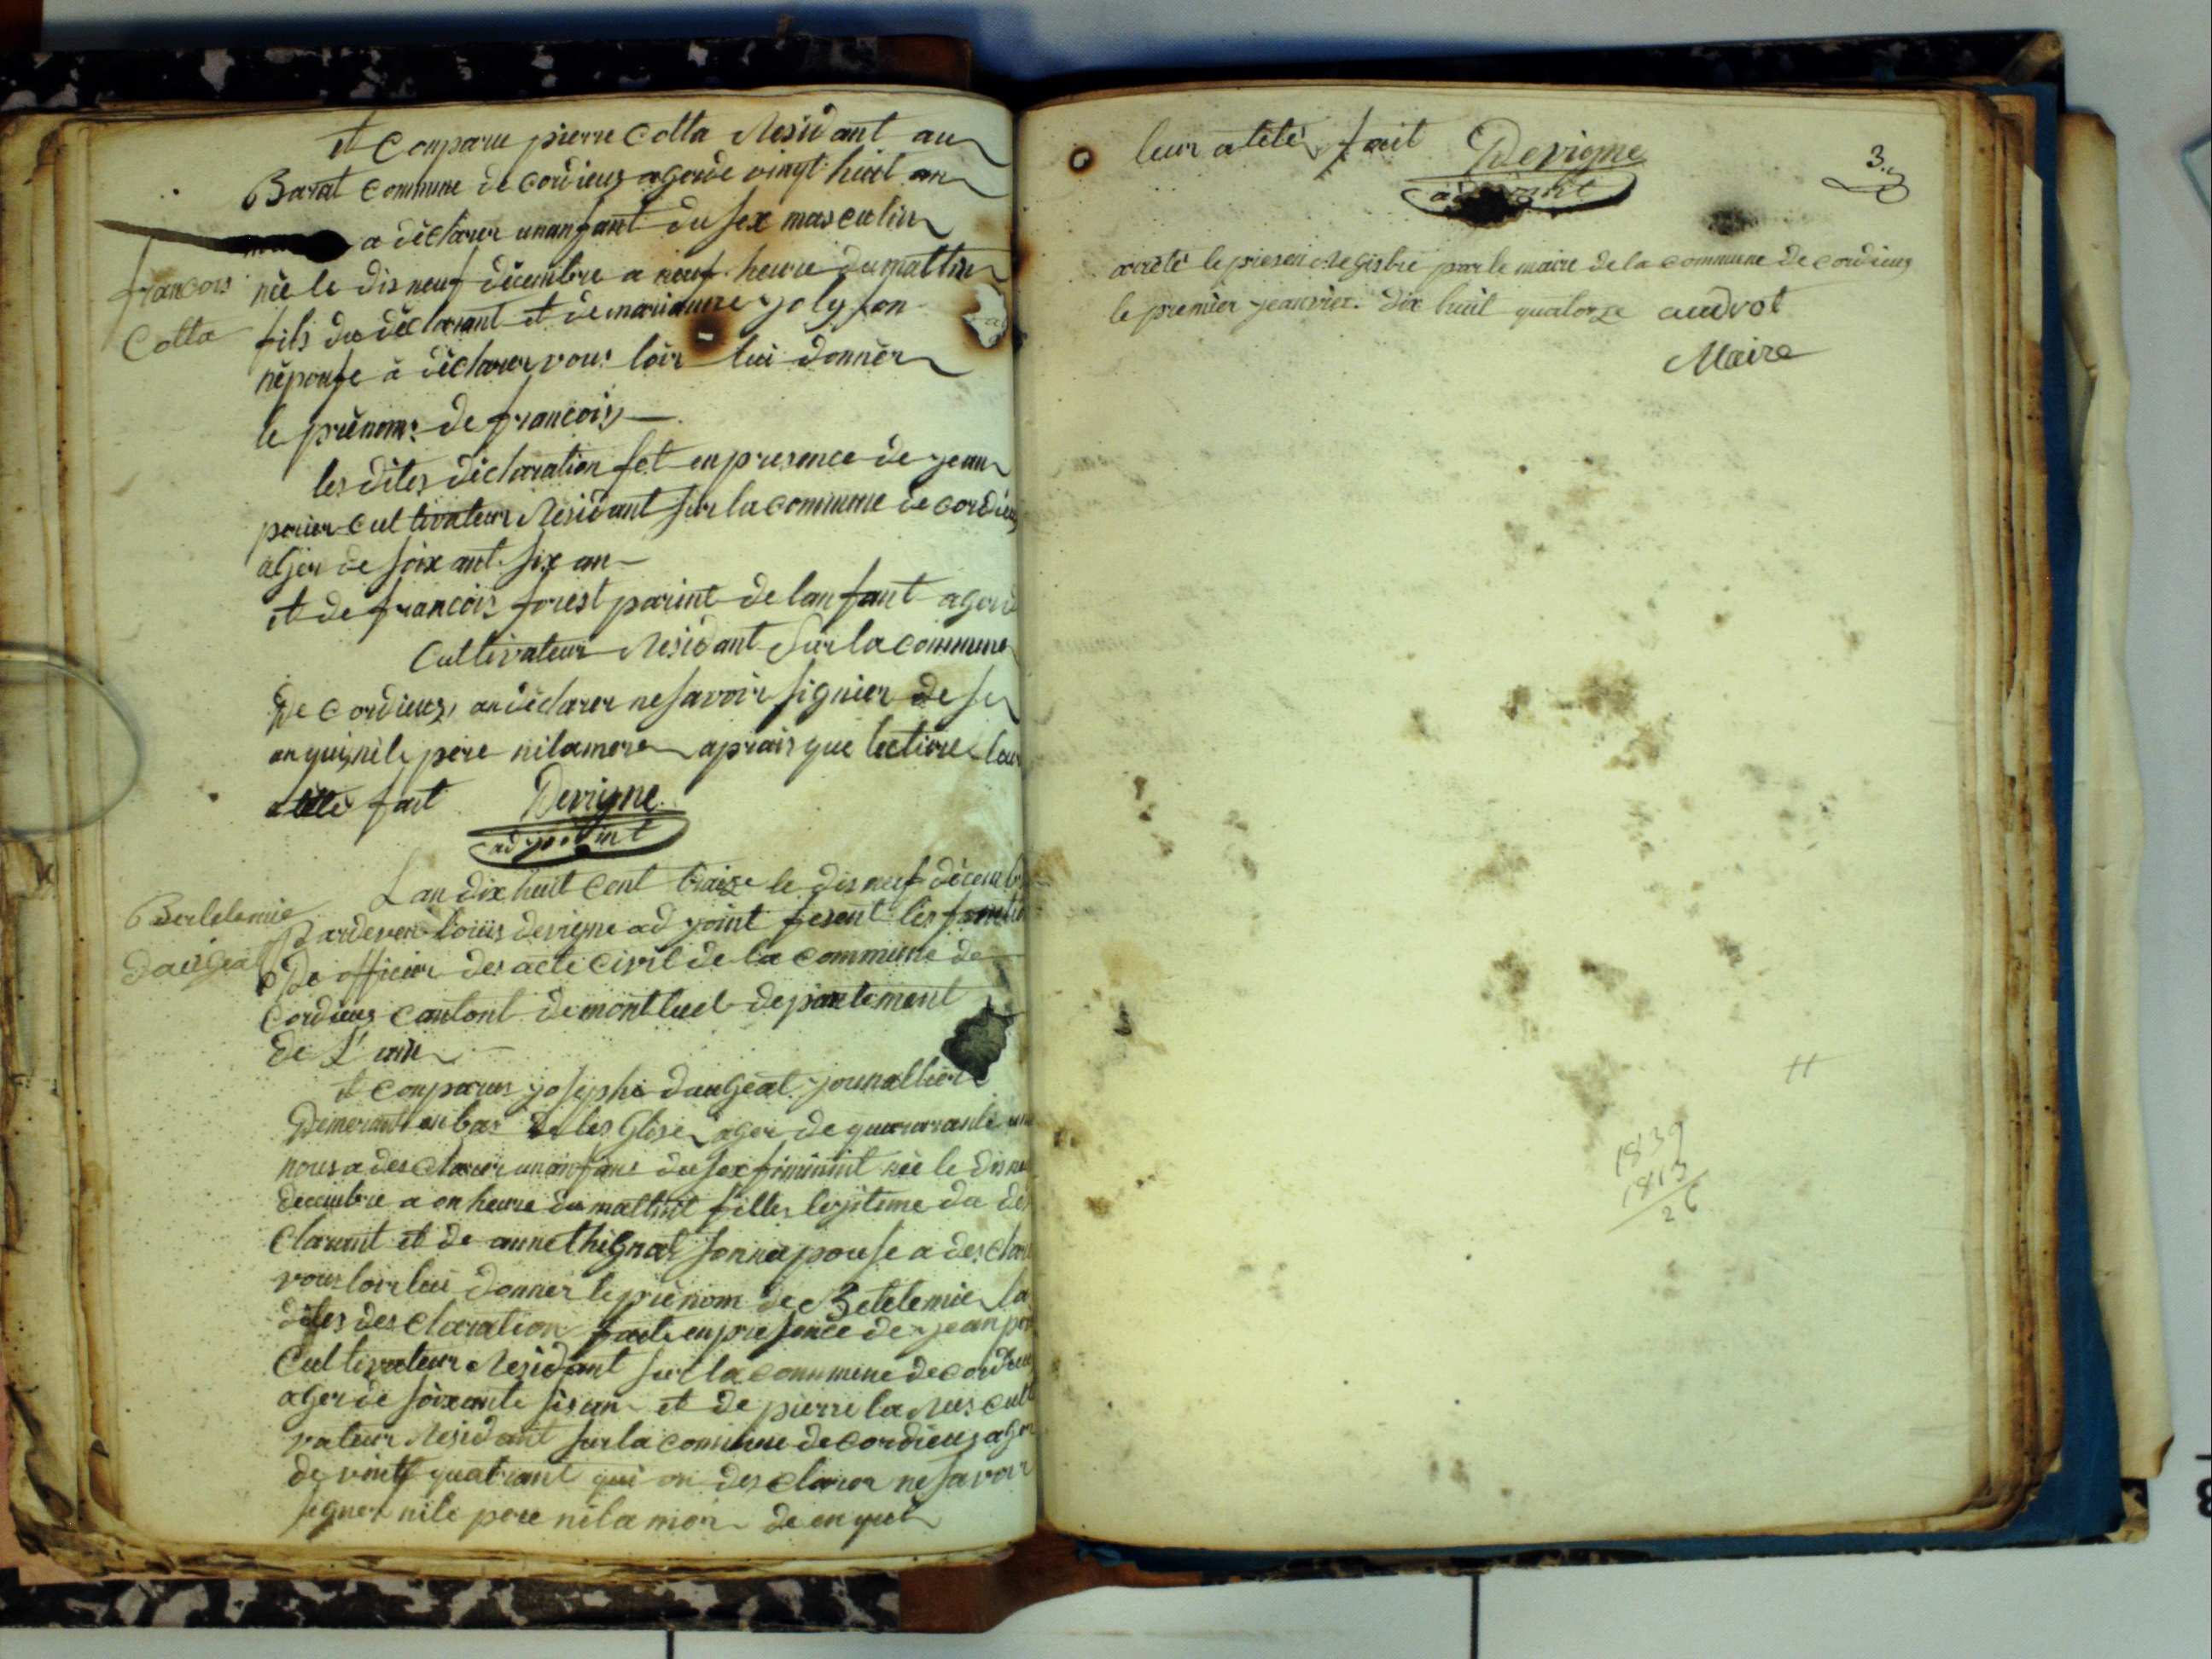 et Comparu pierre Cotta Residant au
Barat Commune de Cordieux agerde vingt huit an
a dèclarer unanfant du sex masculin
francois
Cotta
nèe le dis neuf dècembre a neuf heure du mattin
fils du dèclarant et de marianne joly son
nèpouse à dèclarer vous loir lui donnèr
le prènom de francois
les dites dèclaration fet en presence de jean
perier Cultivateur Residant sur la commune de Cordieux
ager de soixant six an
et de francois forest parint de lanfant ager
Cultivateur Residant Sur la commune
De Cordieux, an dèclarer ne savoir signier de se
an qui, ni le père ni la mere apriais que lecture leur
a ètè fait Devigne
adjoint
Lan dix huit Cent traize le dis neuf dècemb
Bertelemie
daujeat
Pardevent louis devigne ad joint fesent les fonction
De officier des acte civil de la commune de
Cordieux Cantont de montluel departement
de L'ain
et Comparus josephe daujeat journallier
Demerant en bas de les Glise ager de quarrante
nous a des clarer un anfans du sex fiminint nèe le dis neuf
decembre a on heure du mattint filles legitime du de
clarant et de anne thignat sonnèpouse a des clarer
vous loir lui donner le prènom de Betelemie la
dites des claration faite en presence de jean per
Cultivateur Residant sur la commune de Cordieux
ager de soixante sis an et de pierre la Rus cult
vateur Residant sur la commune de Cordieux ager
de vintt quatrant qui on des clarer ne savoir
signer ni le pere ni la mèr de en quet
leur atètè fait Devigne
adjoint
3
arrètè le present Registre par le maire de la commune de Cordieux
le premier jeanvier dix huit quatorze audrot
Maire
1839
1813
26